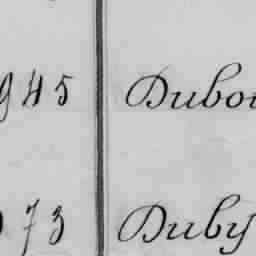 945 Dubou
73 Duby